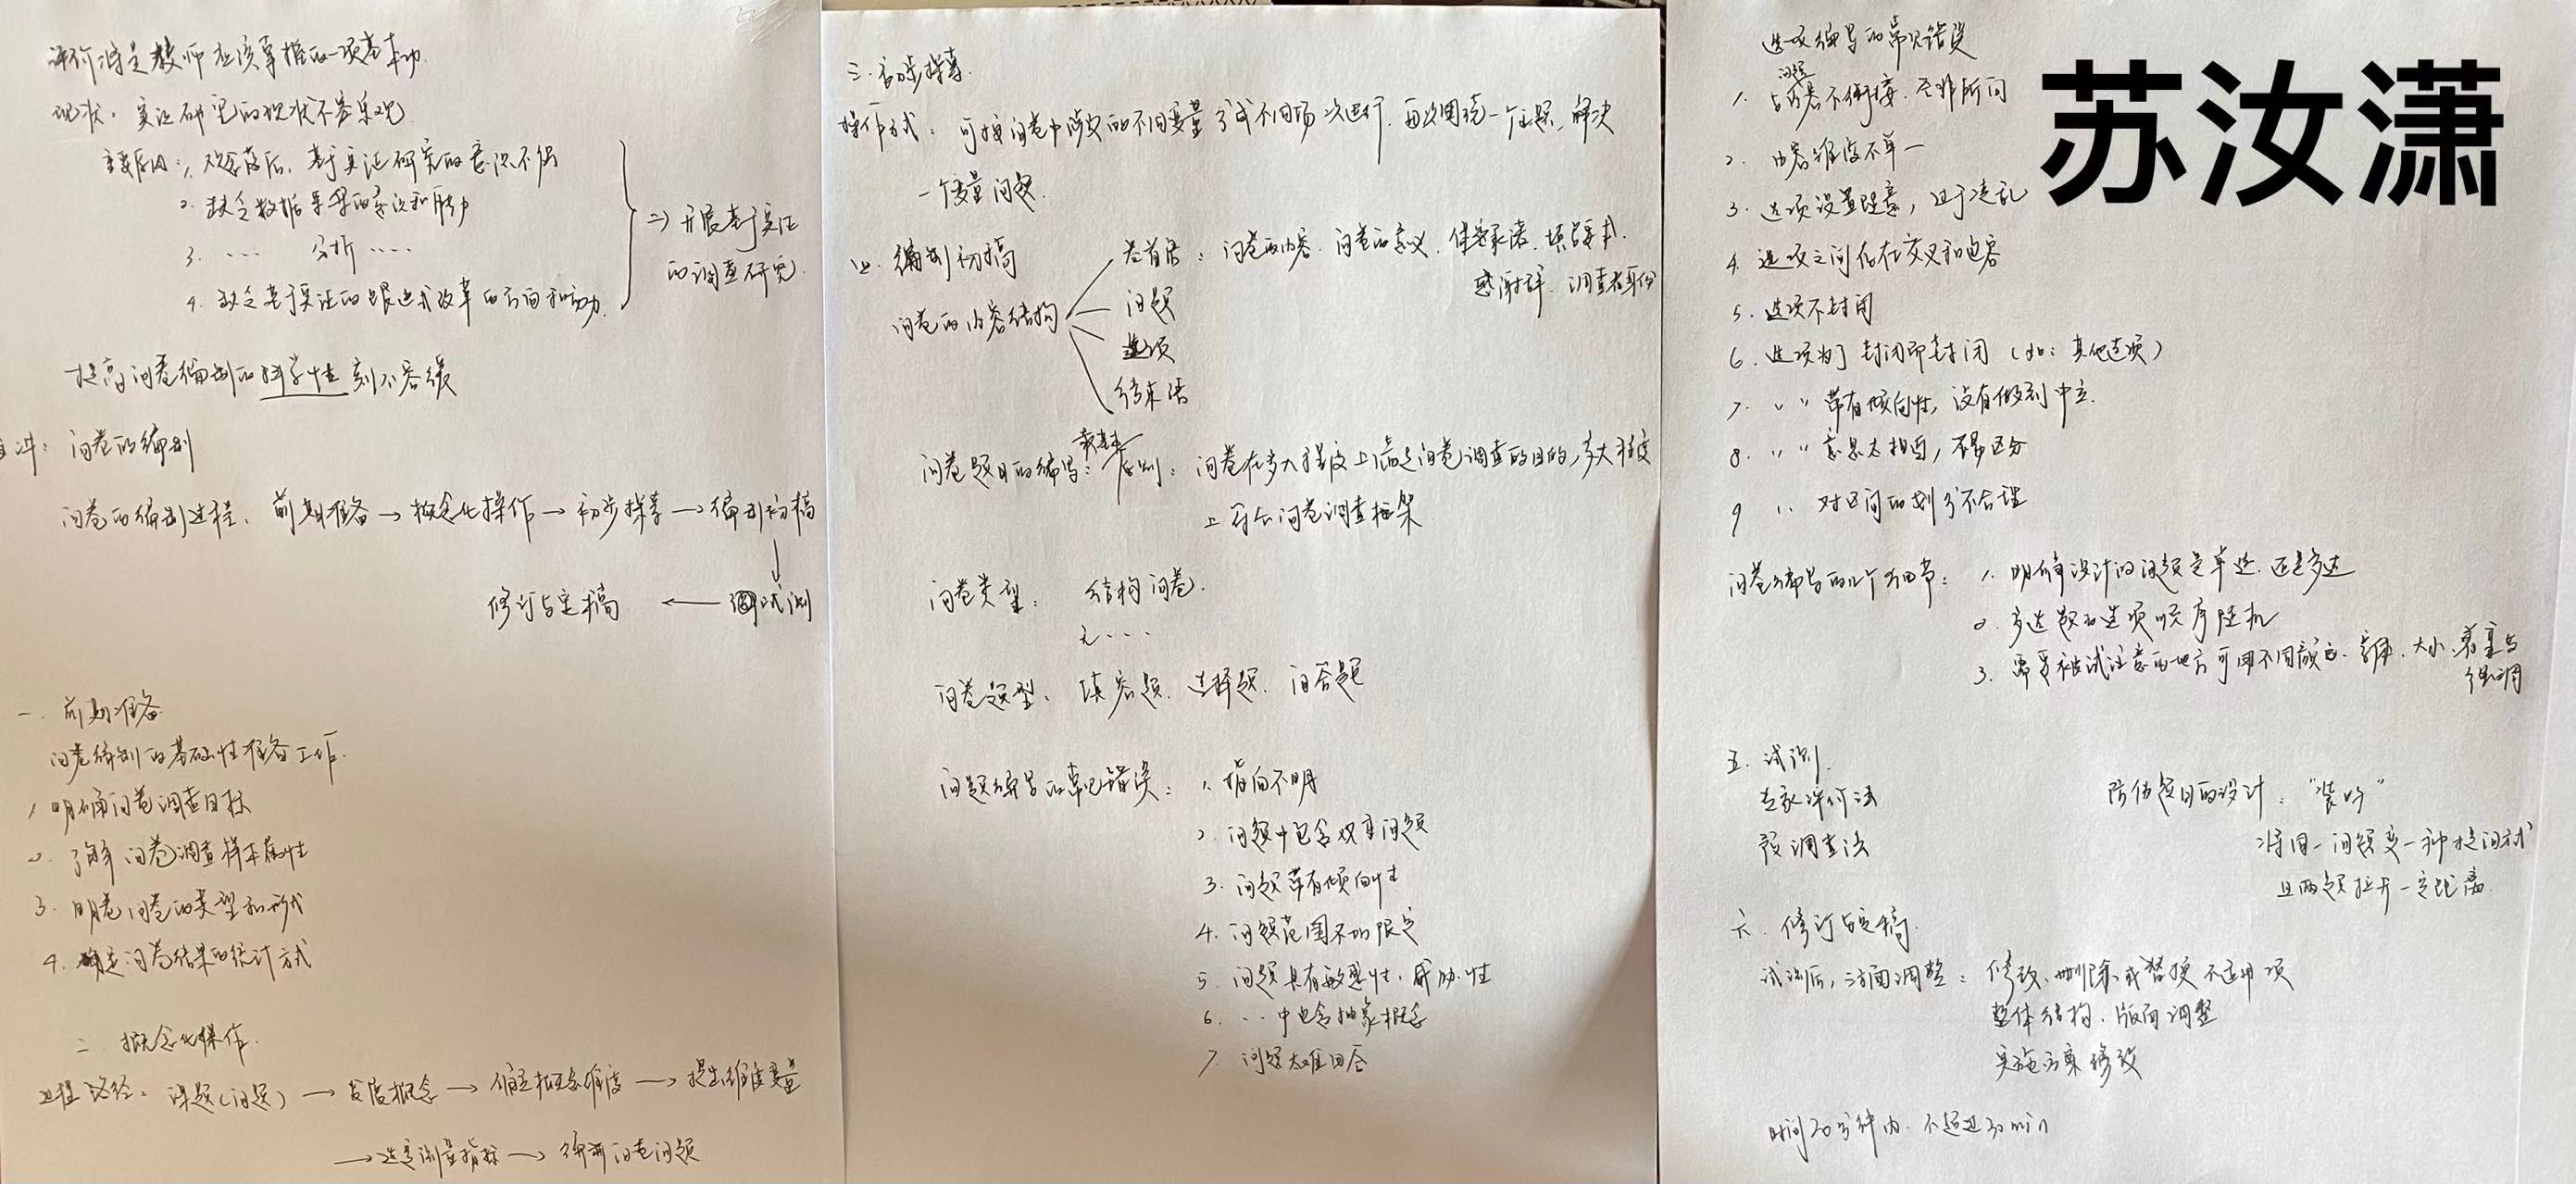 评价将是教师应该掌握的一项基本功.
现状: 实证研究的现状不容乐观
主要原因: 1. 观念落后, 基于实证研究的意识不强
2. 缺乏数据采集的意识和能力
3. .... 分析 ....
4. 缺乏基于实证的跟进式改革的方面和动力.
=> 开展基于实证
的调查研究.
提高问卷编制的科学性刻不容缓
问卷的编制
问卷的编制过程: 前期准备 → 概念化操作 → 初步探索 → 编制初稿
↓
修订与定稿 ← 试测
一. 前期准备
问卷编制的基础性准备工作.
1. 明确问卷调查目标
2. 了解问卷调查样本属性
3. 明确问卷的类型和形式
4. 确定问卷结果的统计方式
二. 概念化操作.
过程路经: 课题(问题) → 发展概念 → 确定概念维度 → 提出维度变量
→ 选定测量指标 → 编制问卷问题
三. 初步探索.
操作方式: 可按问卷中涉及的不同变量分成不同场次进行. 每次围绕一个主题, 解决
一个变量问题.
四. 编制初稿
问卷的内容结构
卷首语: 问卷的内容. 问卷的意义. 保密承诺. 填写要求.
感谢辞. 调查者身份
问题
选项
结束语
问卷题目的编写: 最基本原则: 问卷在多大程度上满足问卷调查的目的, 多大程度
上符合问卷调查框架
问卷类型: 结构问卷.
无....
问卷题型: 填空题. 选择题. 问答题
问题编写的常见错误: 1. 指向不明
2. 问题中包含双重问题
3. 问题带有倾向性
4. 问题范围不加限定
5. 问题具有敏感性. 威胁性
6. .. 中包含抽象概念
7. 问题太难回答
选项编写的常见错误
1. 与问题内容不衔接. 答非所问
2. 内容维度不单一
3. 选项设置随意, 过于凌乱
4. 选项之间存在交叉和包容
5. 选项不封闭
6. 选项为了封闭而封闭 (如: 其他选项)
7. 〃 〃 带有倾向性, 没有做到中立.
8. 〃 〃 意思太相近, 不易区分
9 〃 对区间的划分不合理
问卷编写的几个细节: 1. 明确设计的问题是单选. 还是多选
2. 多选题的选项顺序随机
3. 需要被试注意的地方可用不同颜色. 字体. 大小. 着重与
强调
五. 试测.
专家评价法
预调查法
防伪题目的设计: “装好”
将同一问题变一种提问方式
且两题拉开一定距离.
六. 修订与定稿.
试测后, 三方面调整: 修改、删除或替换不适用项
整体结构. 版面调整
实施方案修改
时间20分钟内. 不超过30min
苏汝潇